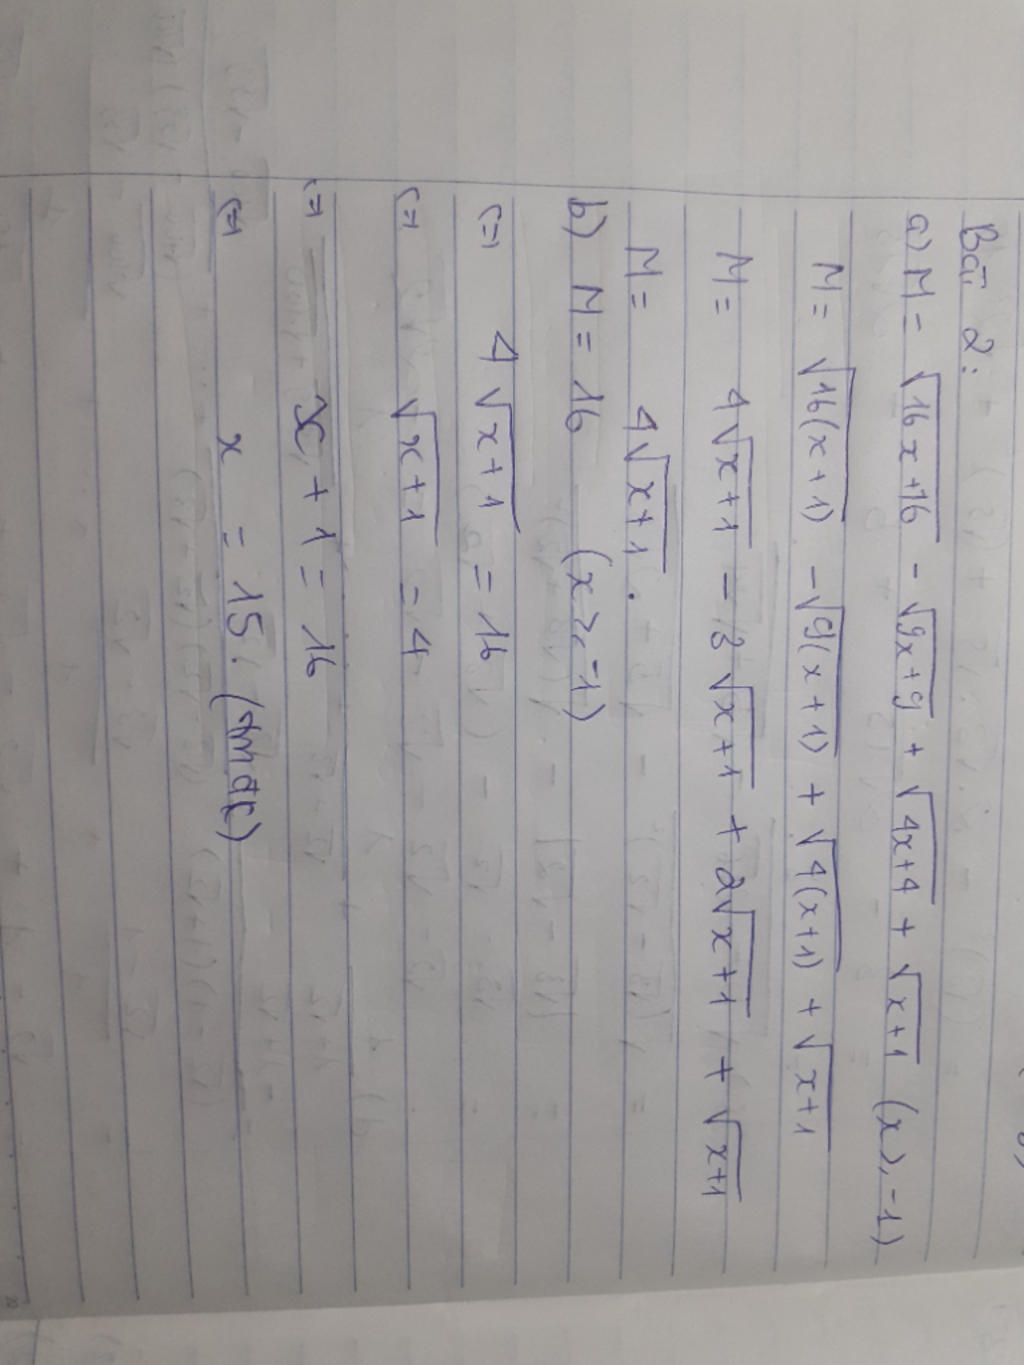 Bài 2:
a) M = √16x+16 - √9x+9 + √4x+4 + √x+1 (x ≥ -1)
M = √16(x+1) - √9(x+1) + √4(x+1) + √x+1
M = 4√x+1 - 3√x+1 + 2√x+1 + √x+1
M = 4√x+1.
b) M = 16 (x ≥ -1)
(=) 4√x+1 = 16
(=) √x+1 = 4
(=) x + 1 = 16
(=) x = 15. (tmđk)